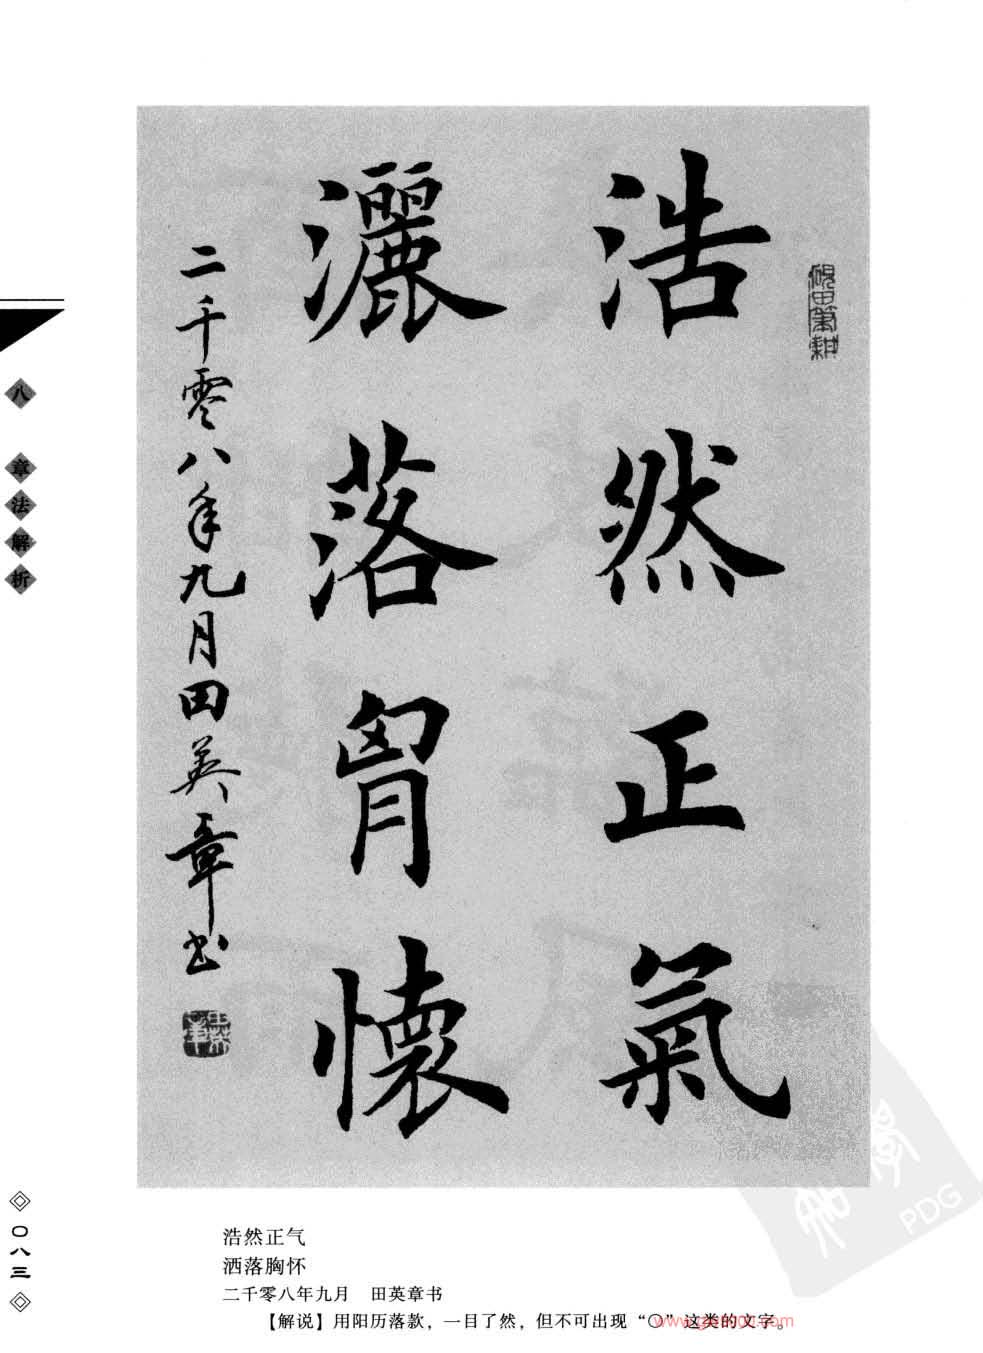 浩然正氣
灑落胷懷
二千零八年九月田英章书
砚田筆耕
八 章法解析
〇八三
浩然正气
洒落胸怀
二千零八年九月 田英章书
【解说】用阳历落款，一目了然，但不可出现“〇”这类的文字。
PDG